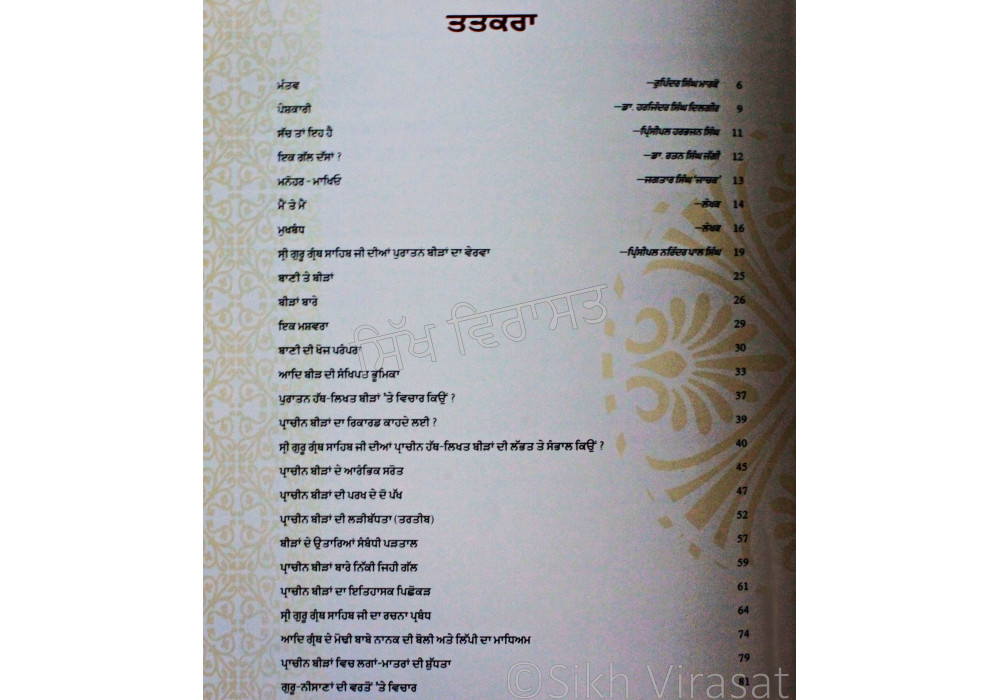 ਤਤਕਰਾ
ਮੰਤਵ —ਭੁਪਿੰਦਰ ਸਿੰਘ ਮਾਰਕੋ 6
ਪੇਸ਼ਕਾਰੀ —ਡਾ. ਹਰਜਿੰਦਰ ਸਿੰਘ ਦਿਲਗੀਰ 9
ਸੱਚ ਤਾਂ ਇਹ ਹੈ —ਪ੍ਰਿੰਸੀਪਲ ਹਰਭਜਨ ਸਿੰਘ 11
ਇਕ ਗੱਲ ਦੱਸਾਂ ? —ਡਾ. ਰਤਨ ਸਿੰਘ ਜੱਗੀ 12
ਮਨੋਹਰ - ਮਾਖਿਓ —ਜਗਤਾਰ ਸਿੰਘ 'ਜਾਚਕ' 13
ਮੈਂ ਤੇ ਮੈਂ —ਲੇਖਕ 14
ਮੁਖਬੰਧ —ਲੇਖਕ 16
ਸ੍ਰੀ ਗੁਰੂ ਗ੍ਰੰਥ ਸਾਹਿਬ ਜੀ ਦੀਆਂ ਪੁਰਾਤਨ ਬੀੜਾਂ ਦਾ ਵੇਰਵਾ —ਪ੍ਰਿੰਸੀਪਲ ਨਰਿੰਦਰ ਪਾਲ ਸਿੰਘ 19
ਬਾਣੀ ਤੇ ਬੀੜਾਂ 25
ਬੀੜਾਂ ਬਾਰੇ 26
ਇਕ ਮਸ਼ਵਰਾ 29
ਬਾਣੀ ਦੀ ਖੋਜ ਪਰੰਪਰਾ 30
ਸਿੱਖ ਵਿਰਾਸਤ
ਆਦਿ ਬੀੜ ਦੀ ਸੰਖਿਪਤ ਭੂਮਿਕਾ 33
ਪੁਰਾਤਨ ਹੱਥ-ਲਿਖਤ ਬੀੜਾਂ 'ਤੇ ਵਿਚਾਰ ਕਿਉਂ ? 37
ਪ੍ਰਾਚੀਨ ਬੀੜਾਂ ਦਾ ਰਿਕਾਰਡ ਕਾਹਦੇ ਲਈ ? 39
ਸ੍ਰੀ ਗੁਰੂ ਗ੍ਰੰਥ ਸਾਹਿਬ ਜੀ ਦੀਆਂ ਪ੍ਰਾਚੀਨ ਹੱਥ-ਲਿਖਤ ਬੀੜਾਂ ਦੀ ਲੱਭਤ ਤੇ ਸੰਭਾਲ ਕਿਉਂ ? 40
ਪ੍ਰਾਚੀਨ ਬੀੜਾਂ ਦੇ ਆਰੰਭਿਕ ਸਰੋਤ 45
ਪ੍ਰਾਚੀਨ ਬੀੜਾਂ ਦੀ ਪਰਖ ਦੇ ਦੋ ਪੱਖ 47
ਪ੍ਰਾਚੀਨ ਬੀੜਾਂ ਦੀ ਲੜੀਬੱਧਤਾ (ਤਰਤੀਬ) 52
ਬੀੜਾਂ ਦੇ ਉਤਾਰਿਆਂ ਸੰਬੰਧੀ ਪੜਤਾਲ 57
ਪ੍ਰਾਚੀਨ ਬੀੜਾਂ ਬਾਰੇ ਨਿੱਕੀ ਜਿਹੀ ਗੱਲ 59
ਪ੍ਰਾਚੀਨ ਬੀੜਾਂ ਦਾ ਇਤਿਹਾਸਕ ਪਿਛੋਕੜ 61
ਸ੍ਰੀ ਗੁਰੂ ਗ੍ਰੰਥ ਸਾਹਿਬ ਜੀ ਦਾ ਰਚਨਾ ਪ੍ਰਬੰਧ 64
ਆਦਿ ਗ੍ਰੰਥ ਦੇ ਮੋਢੀ ਬਾਬੇ ਨਾਨਕ ਦੀ ਬੋਲੀ ਅਤੇ ਲਿੱਪੀ ਦਾ ਮਾਧਿਅਮ 74
ਪ੍ਰਾਚੀਨ ਬੀੜਾਂ ਵਿਚ ਲਗਾਂ-ਮਾਤਰਾਂ ਦੀ ਸ਼ੁੱਧਤਾ 79
ਗੁਰੂ-ਨੀਸਾਣਾਂ ਦੀ ਵਰਤੋਂ 'ਤੇ ਵਿਚਾਰ 81
©Sikh Virasat